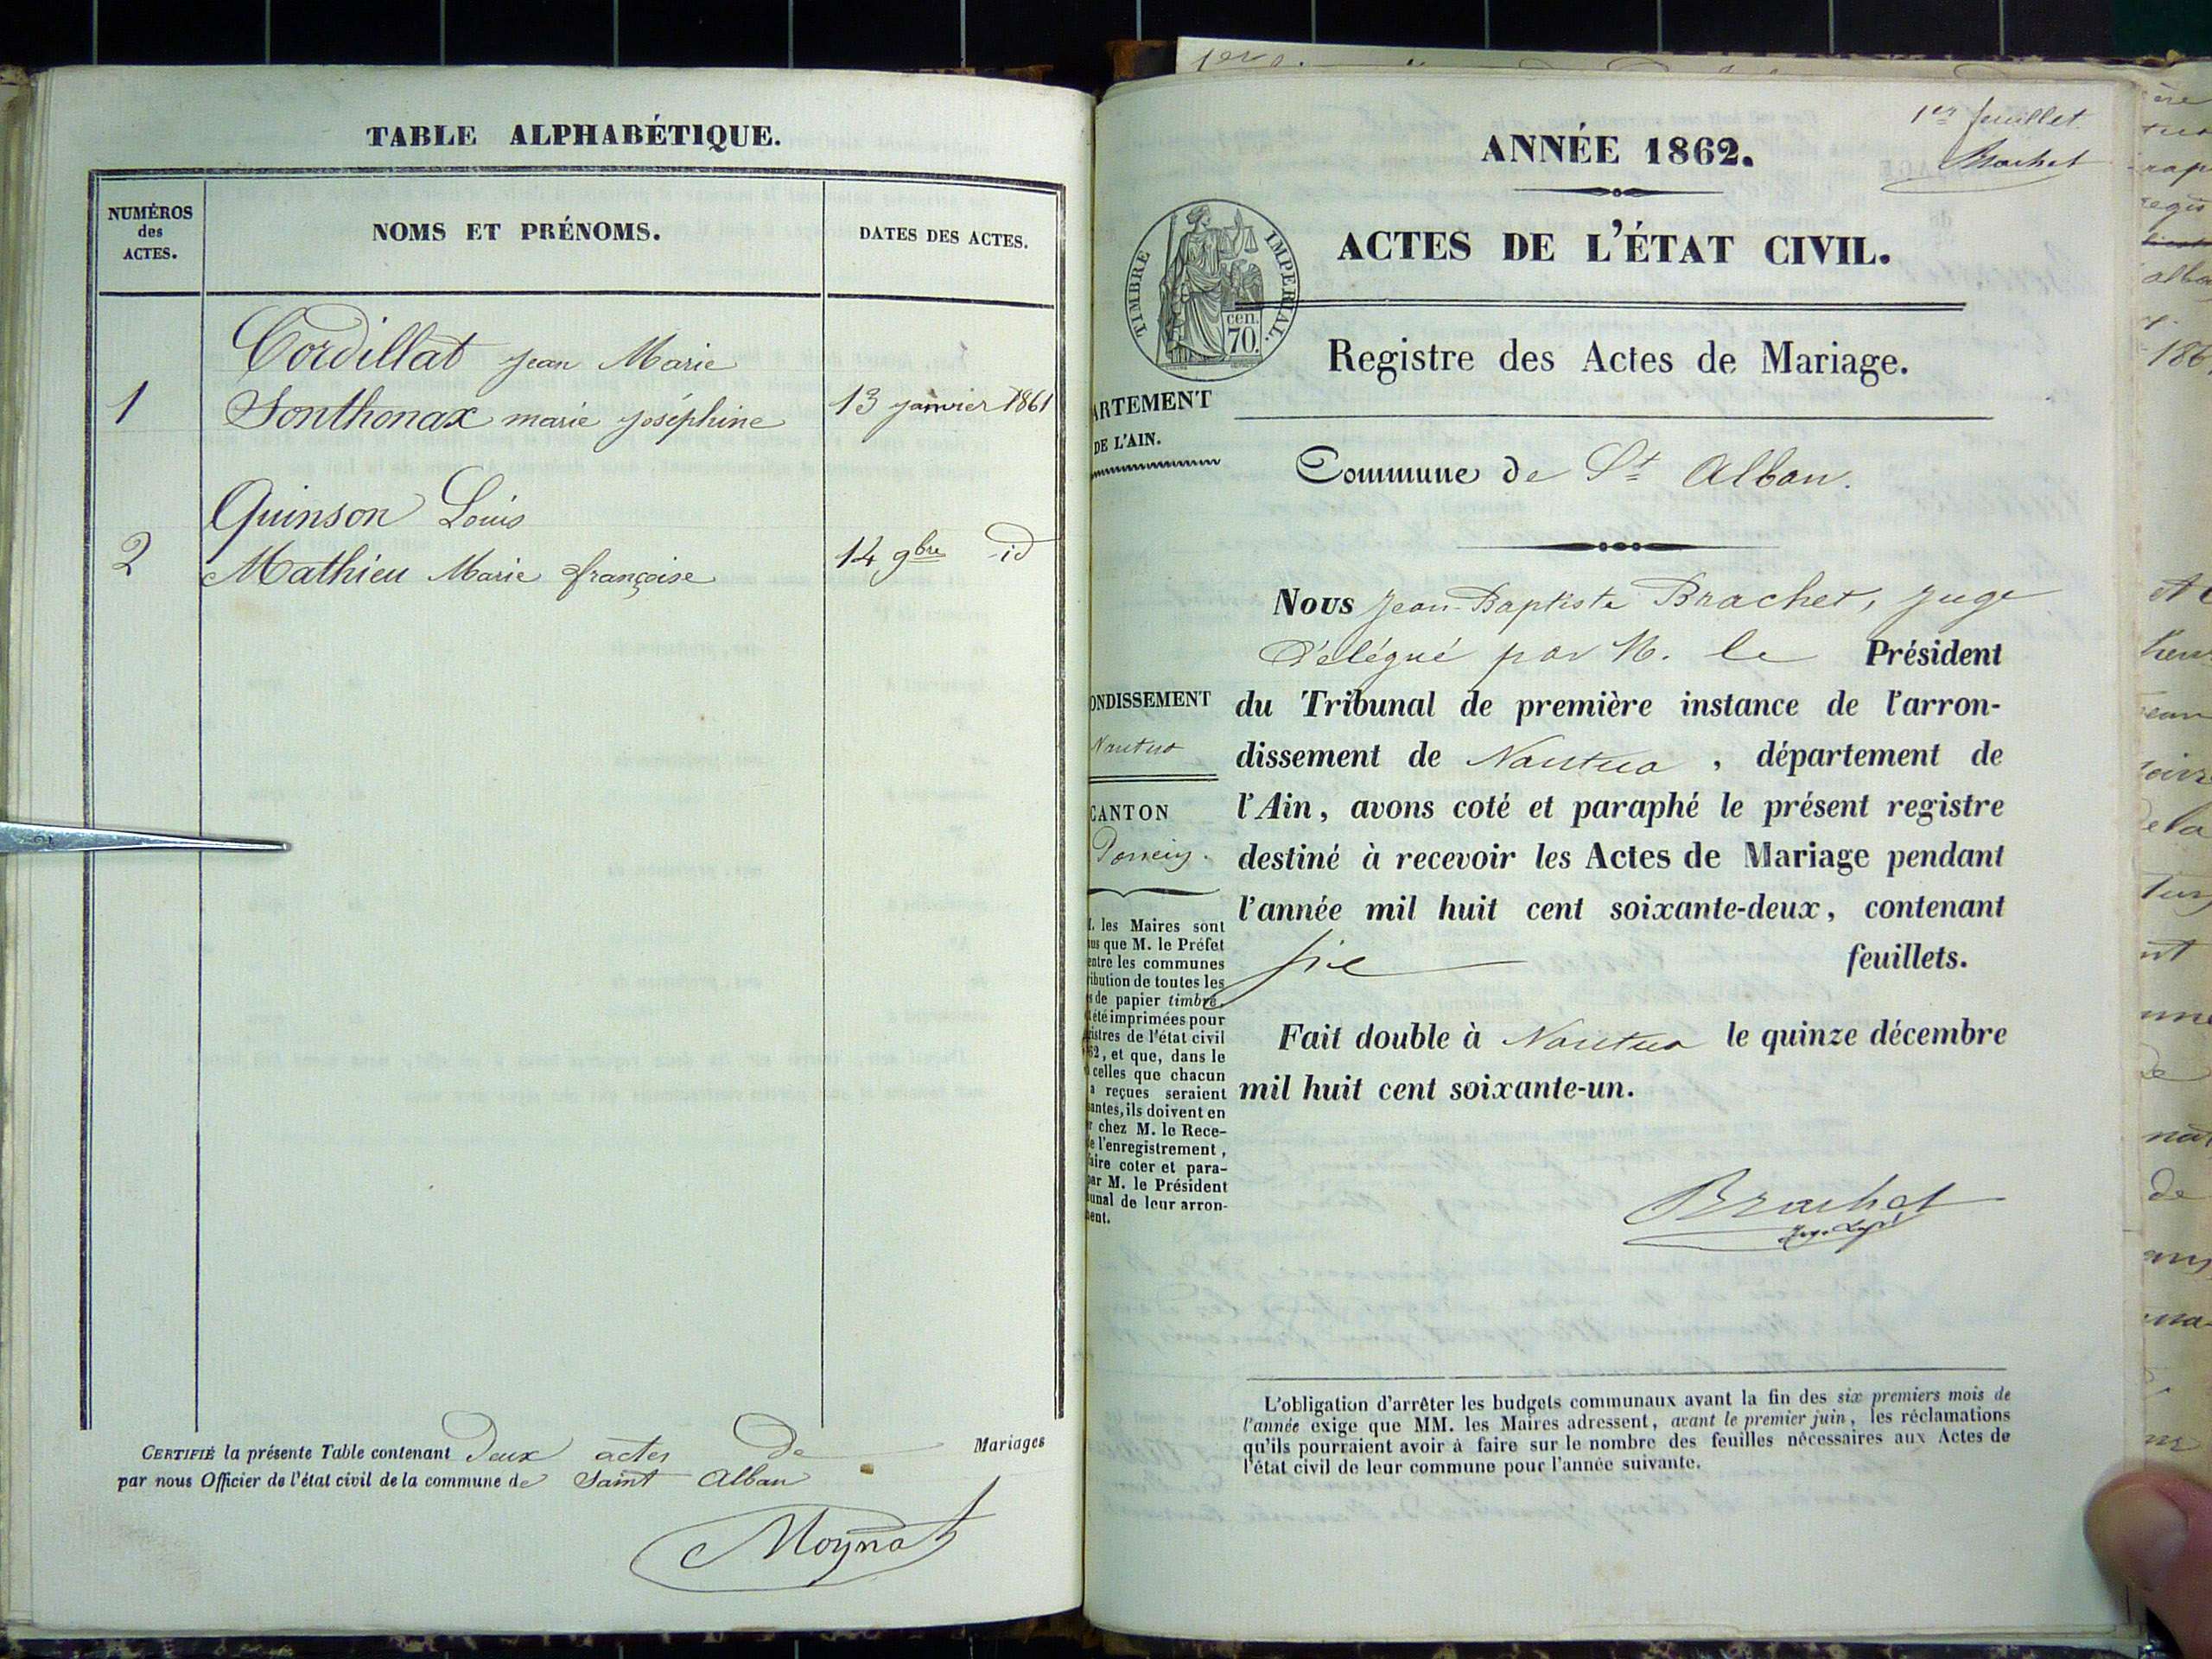 TABLE ALPHABÉTIQUE.
NUMÉROS
des
ACTES.
NOMS ET PRÉNOMS.
DATES DES ACTES.
Cordillat Jean Marie
1 Sonthonax marie joséphine 13 janvier 1861
Quinson Louis
2 Mathieu Marie françoise 14 9bre id
CERTIFIÉ la présente Table contenant Deux actes de Mariages
par nous Officier de l'état civil de la commune de Saint Alban
Moynat
1er feuillet.
Brachet
ANNÉE 1862.
ACTES DE L'ÉTAT CIVIL.
TIMBRE IMPÉRIAL.
cen.
70.
Registre des Actes de Mariage.
ARTEMENT
DE L'AIN.
Commune de St Alban.
Nous Jean-Baptiste Brachet, juge
Délégué par M. le Président
du Tribunal de première instance de l'arron-
dissement de Nantua, département de
l'Ain, avons coté et paraphé le présent registre
destiné à recevoir les Actes de Mariage pendant
l'année mil huit cent soixante-deux, contenant
six feuillets.
Fait double à Nantua le quinze décembre
mil huit cent soixante-un.
Brachet
ONDISSEMENT
Nantua
CANTON
Poncin.
. les Maires sont
us que M. le Préfet
entre les communes
ribution de toutes les
s de papier timbré,
été imprimées pour
istres de l'état civil
62, et que, dans le
celles que chacun
a reçues seraient
santes, ils doivent en
r chez M. le Rece-
e l'enregistrement,
aire coter et para-
par M. le Président
unal de leur arron-
ent.
L'obligation d'arrêter les budgets communaux avant la fin des six premiers mois de
l'année exige que MM. les Maires adressent, avant le premier juin, les réclamations
qu'ils pourraient avoir à faire sur le nombre des feuilles nécessaires aux Actes de
l'état civil de leur commune pour l'année suivante.